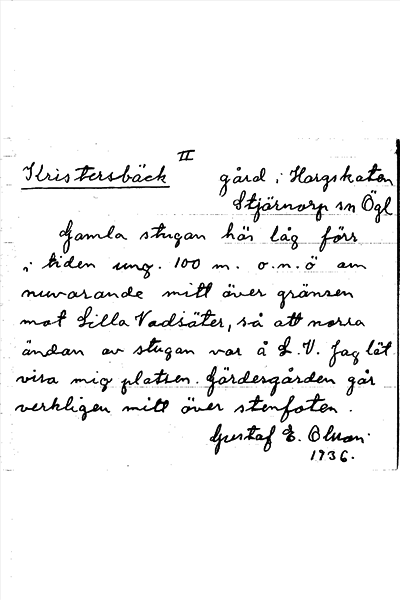 II
Kristersbäck gård i Hargskaten
Stjärnorp sn Ögl
Gamla stugan här låg förr
i tiden ung. 100 m. o.n.ö om
nuvarande mitt över gränsen
mot Lilla Vadsäter, så att norra
ändan av stugan var å L.V. Jag lät
visa mig platsen. Gärdesgården går
verkligen mitt över stenfoten.
Gustaf E. Olsson.
1936.